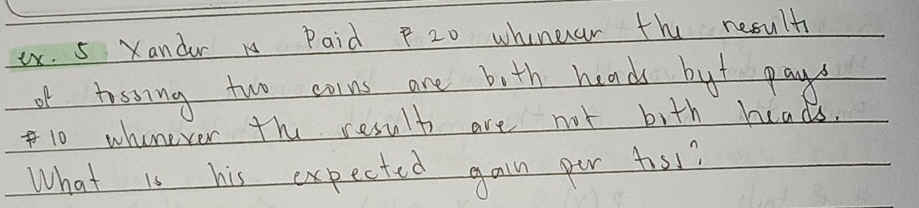 ex. 5 Xander is Paid ₱ 20 whenever the results
of tossing two coins are both heads byt pays
₱ 10 whenever the results are not both heads.
What is his expected gain per toss?